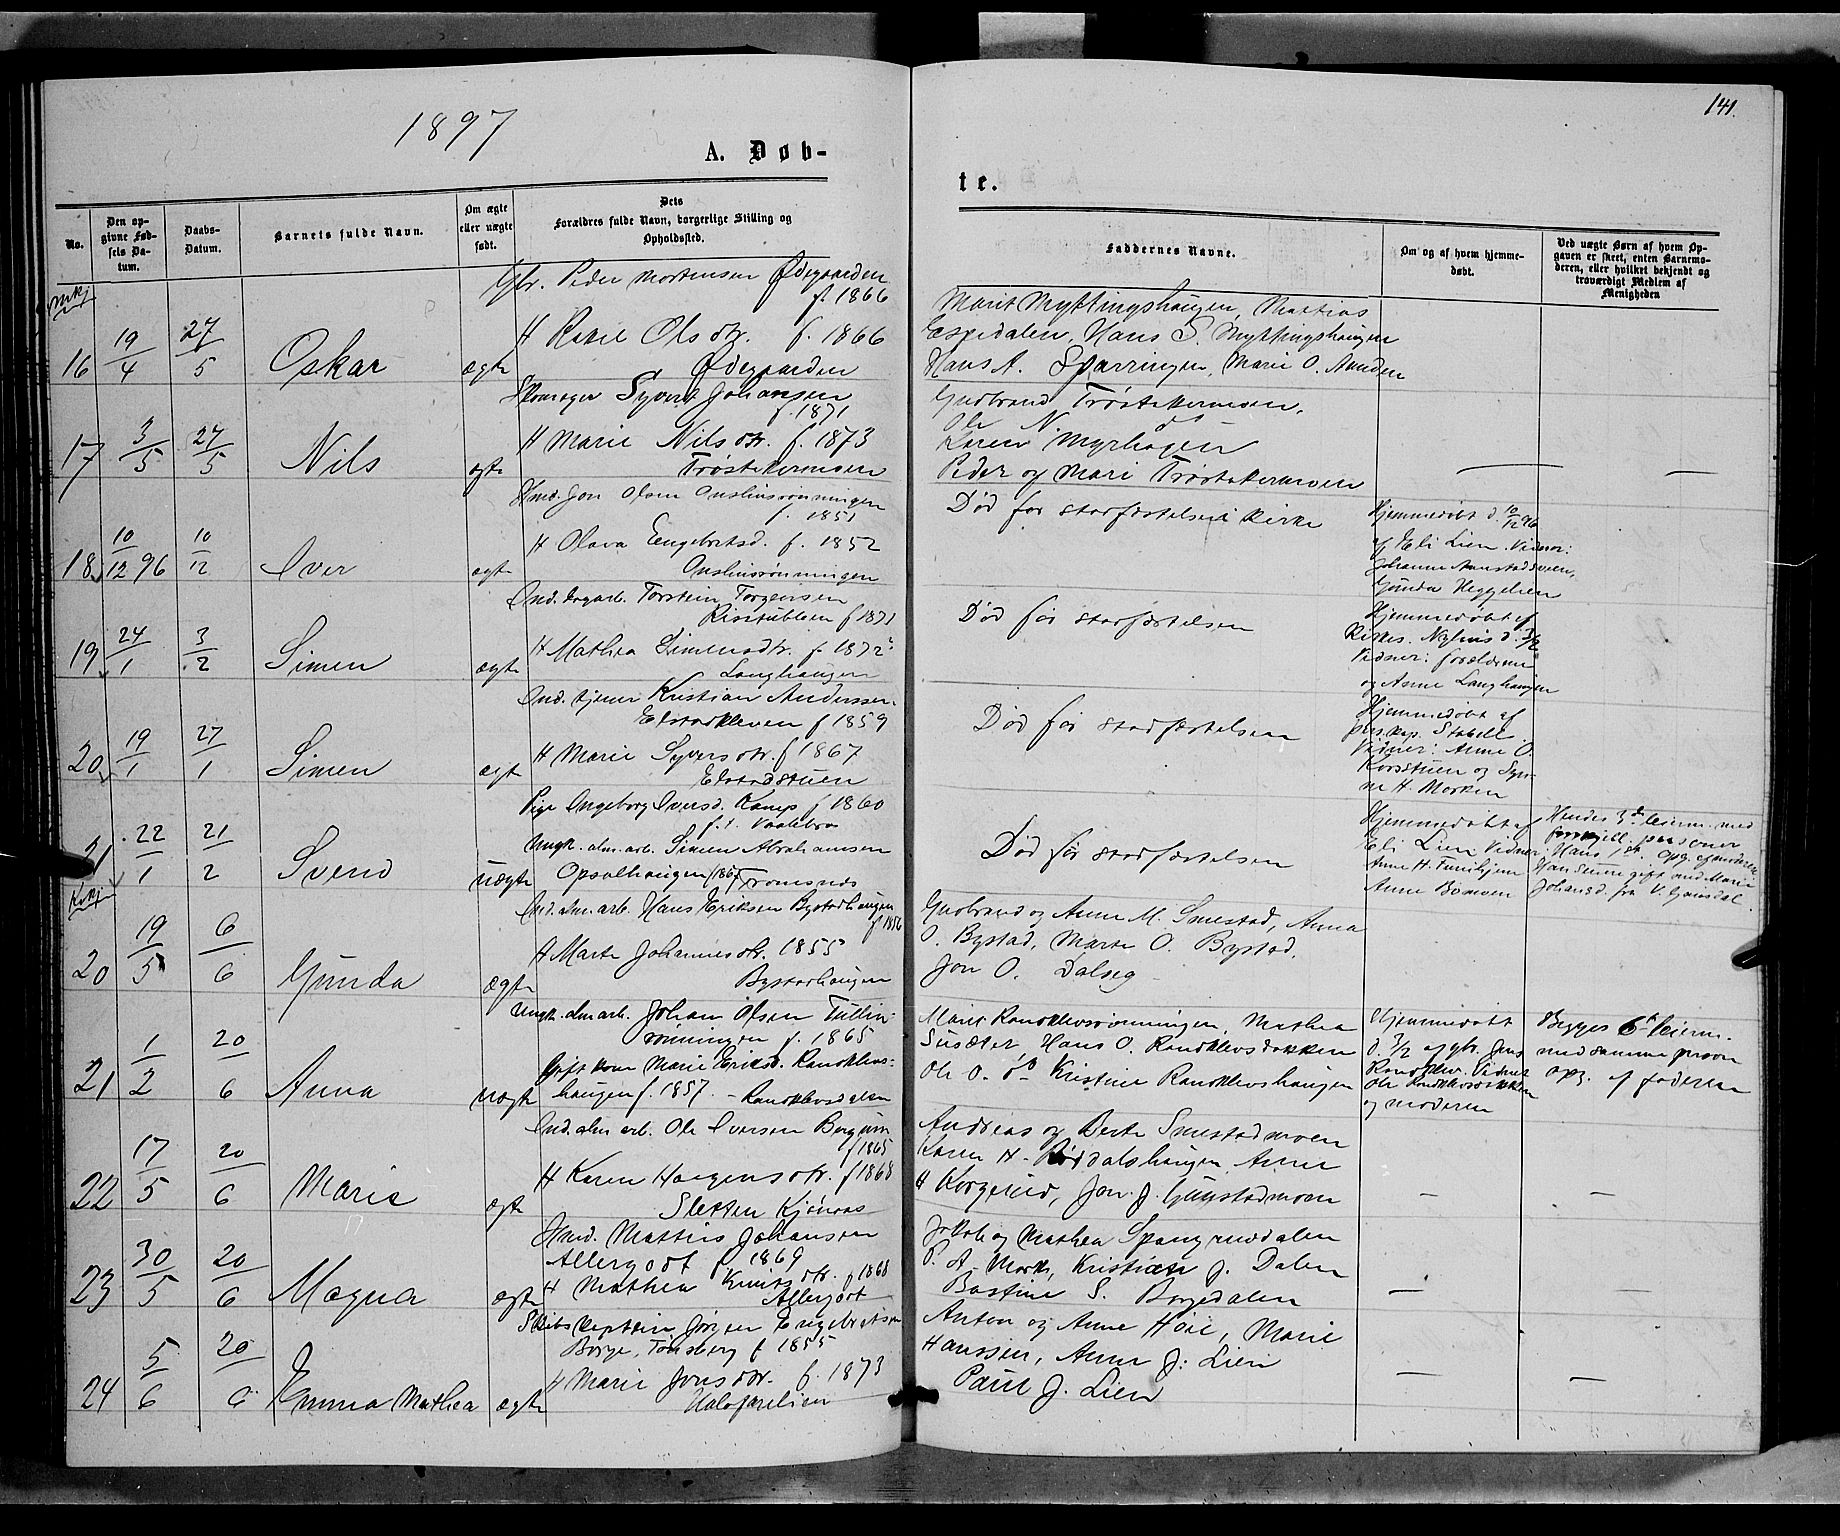 141.
1897
A. Døb-
te.
No.
Den op-
givne Fød-
sels Da-
tum.
Daabs-
Datum.
Barnets fulde Navn.
Om ægte
eller uægte
født.
Dets
Forældres fulde Navn, borgerlige Stilling og
Opholdssted.
Faddernes Navne.
Om og af hvem hjemme-
døbt.
Ved uægte Børn af hvem Op-
gaven er skeet, enten Barnemo-
deren, eller hvilket bekjendt og
troværdigt Medlem af
Menigheden
Mkj
16 19/4 27/5 Oskar ægte
Gbr. Peder Mortensen Ødegaarden
f. 1866
H Olsdtr. f. 1866
Ødegaarden
Marit Myttingshaugen, Mattias
Espedalen, Hans S. Myttingshaugen
Hans A. Sparringen, Marie O.
17 3/5 27/5 Nils ægte
Skomager Syvert Johansen
f. 1871
H Marie Nilsdtr. f. 1873
Gudbrand
Ole N. do
Karen Myrhagen
Peder og Mari
18 10/12 96 10/12 Iver ægte
Jon Olsen
f. 1851
H Olava Engebretsd. f. 1852
Død før stadfæstelsen i Kirke
Hjemmedøbt d. 10/12 96
af Eli Lien. Vidner:
Johanne
Gunda Heggelien
19 24/1 3/2 Simen ægte
Ind. dagarb. Torstein Torgersen
f 1871
H Mathea Simensdtr. f 1872
Langhaugen
Død før stadfæstelsen
Hjemmedøbt af
Kirkes. Nyhus d. 3/2
Vidner: forældrene
og Anne Langhaugen
20 19/1 27/1 Simen ægte
Ind. tjener Kristian Anderssen
Elstadkleven f 1859
H Marie Syversdtr. f 1867
Elstadstuen
Død før stadfæstelsen
Hjemmedøbt af
pers.kap. Stabell.
Vidner: Anne O.
Korsstuen og Syn-
ne H. Morken
21 22/1 21/2 Svend uægte
Pige Ingeborg Iversd. Kamp f 1860
f. t. Vaalebro
Ungk. alm. arb. Simen Abrahamsen
Opsalhaugen (1867) Tromsnes
Død før stadfæstelsen
Hjemmedøbt af
Eli Lien Vidner:
Anne H.
Anne Bomoen
Hendes 3de leierm. med
forskjell. personer
Hans 1ste. Opg. af moderen
Han senere gift med Marie
Johansd. fra V. Gausdal.
Kvkj
20 19/5 6/6 Gunda ægte
Ind. alm. arb. Hans Eriksen Bystadhaugen
f 1856
H Marte Johannesdtr. 1855
Bystadhaugen
Gudbrand og Anne M. Smestad, Anna
O. Bystad, Marte O. Bystad,
Jon O. Dalseg
21 1/2 20/6 Anna uægte
Ungk. alm. arb. Johan Olsen Tullin-
rønningen f. 1865
Gift kone Marie Eriksd. Randklevs-
haugen f. 1857. - Randklevsdalen
Marit Randklevsrønningen, Mathea
Susæter, Hans O. Randklevsbakken
Ole O. do Kristine Randklevshaugen
Hjemmedøbt
d. 3/2 af gbr. Jens
Randklev. Vidner
Ole Randklevsbakken
og moderen
Begges 6te leierm.
med samme person
opg. af faderen
22 17/5 20/6 Marie ægte
Ind. alm arb. Ole Iversen Bergum
f 1865
H Karen Haagensdtr. f 1868
Sletten Kjønaas
Andreas og Berte Smestadmoen
Karen H. Anne
H Korgerud, Jon J. Gunstadmoen
23 30/5 20/6 Magna ægte
Mattis Johansen
Allergodt f 1869
H Mathea Knutsdtr. f 1868
Allergodt
Jakob og Mathea
P. A. Mork, J. Dalen
Bastine S.
24 5/6 20/6 Emma Mathea ægte
Skibskaptein Jørgen Engebretsen
Borge, Tønsberg f 1855
H Marie Jonsdtr. f. 1873
Anton og Anne Høie, Marie
Hanssen, Anne J. Lien
Paul J. Lien